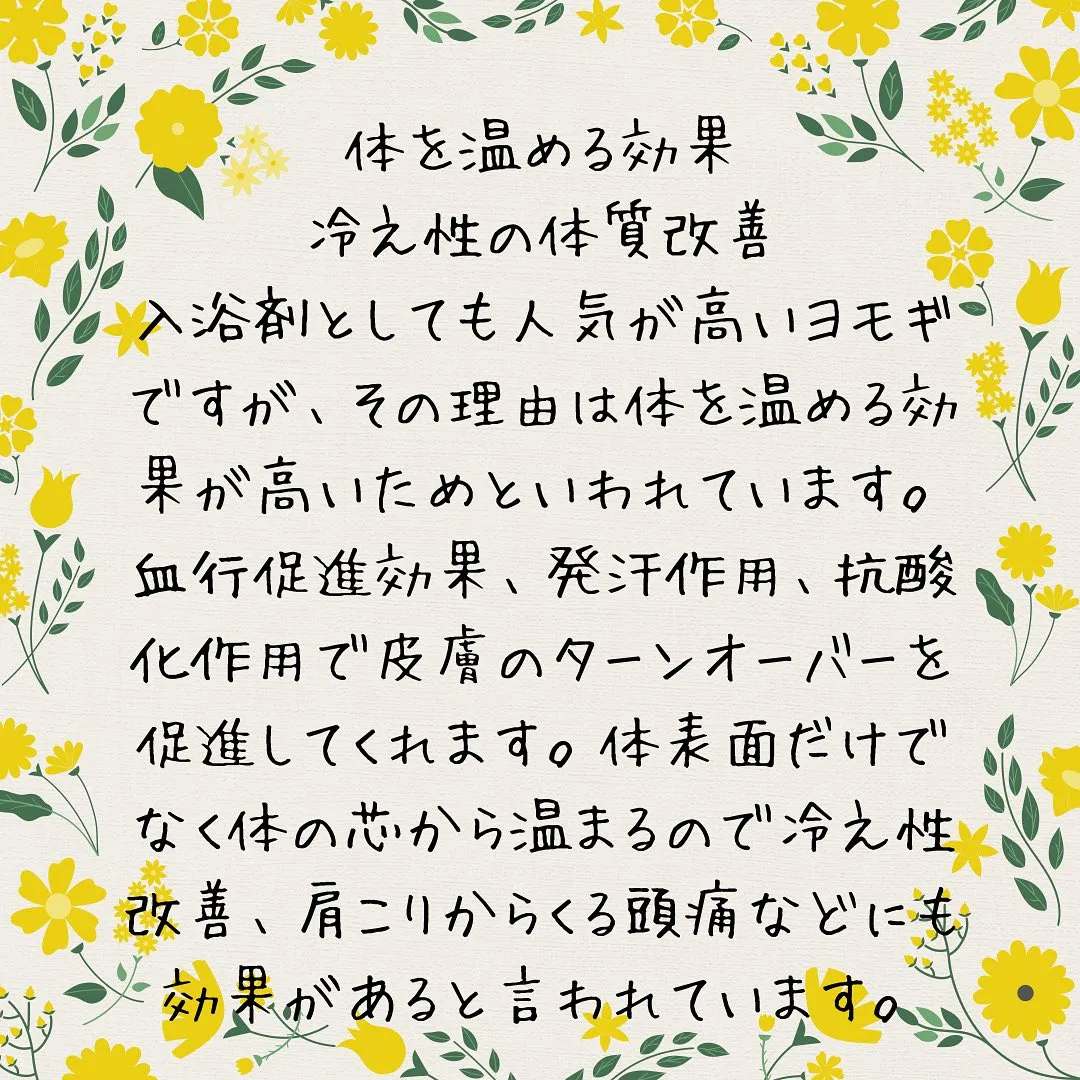 体を温める効果
冷え性の体質改善
入浴剤としても人気が高いヨモギ
ですが、その理由は体を温める効
果が高いためといわれています。
血行促進効果、発汗作用、抗酸
化作用で皮膚のターンオーバーを
促進してくれます。体表面だけで
なく体の芯から温まるので冷え性
改善、肩こりからくる頭痛などにも
効果があると言われています。